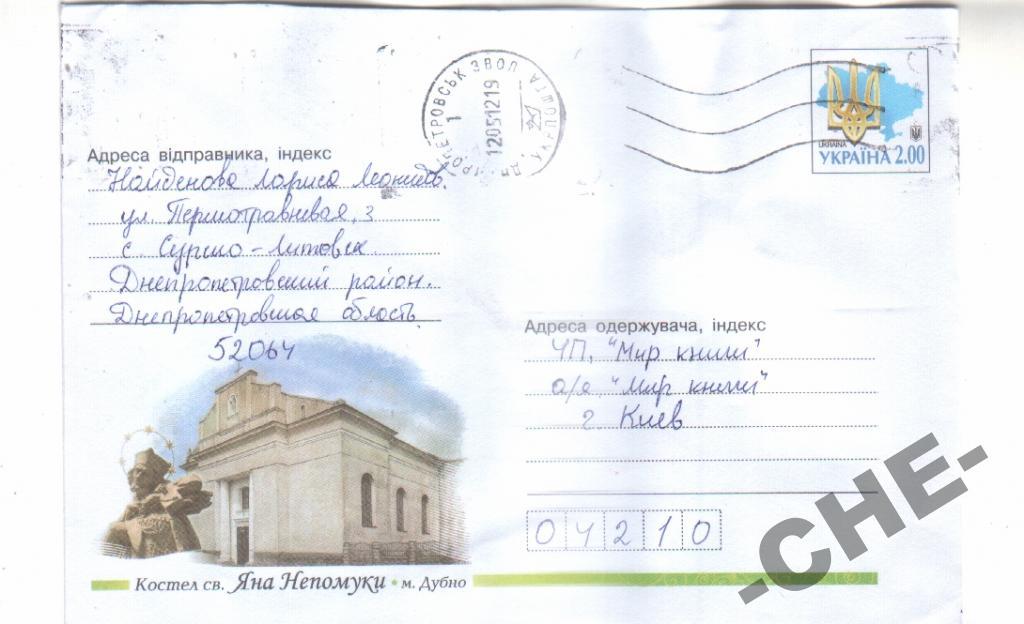 ДНІПРОПЕТРОВСЬК ЗВОЛ
1
12051219
UKRAINA
УКРАЇНА 2.00
Адреса відправника, індекс
Найденова Лариса
ул. Першотравневая, 3
с. Сурско-Литовск
Днепропетровский район.
Днепропетровская область
52064
Адреса одержувача, індекс
ЧП, "Мир книги"
а/я "Мир книги"
г. Киев
04210
Костел св. Яна Непомуки • м. Дубно
-CHE-